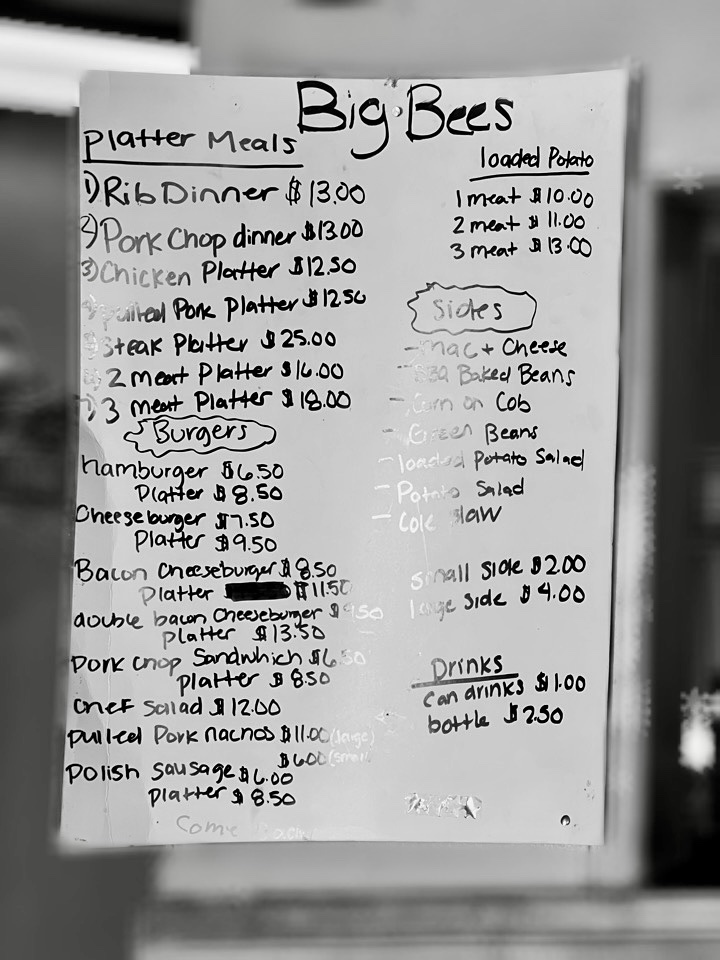 Big Bees
Platter Meals
1) Rib Dinner $13.00
2) Pork Chop dinner $13.00
3) Chicken Platter $12.50
4) pulled Pork Platter $12.50
5) Steak Platter $25.00
6) 2 meat Platter $16.00
7) 3 meat Platter $18.00
Burgers
hamburger $6.50
Platter $8.50
Cheeseburger $7.50
Platter $9.50
Bacon Cheeseburger $8.50
platter $11.50
double bacon Cheeseburger $9.50
platter $13.50
pork chop Sandwhich $6.50
platter $8.50
Chef Salad $12.00
pulled Pork nachos $11.00 (large)
$6.00 (small)
Polish Sausage $6.00
platter $8.50
Come
loaded Potato
1 meat $10.00
2 meat $11.00
3 meat $13.00
Sides
- Mac + Cheese
- BBQ Baked Beans
- Corn on Cob
- Green Beans
- loaded Potato Salad
- Potato Salad
- Cole Slaw
small side $2.00
large side $4.00
Drinks
can drinks $1.00
bottle $2.50